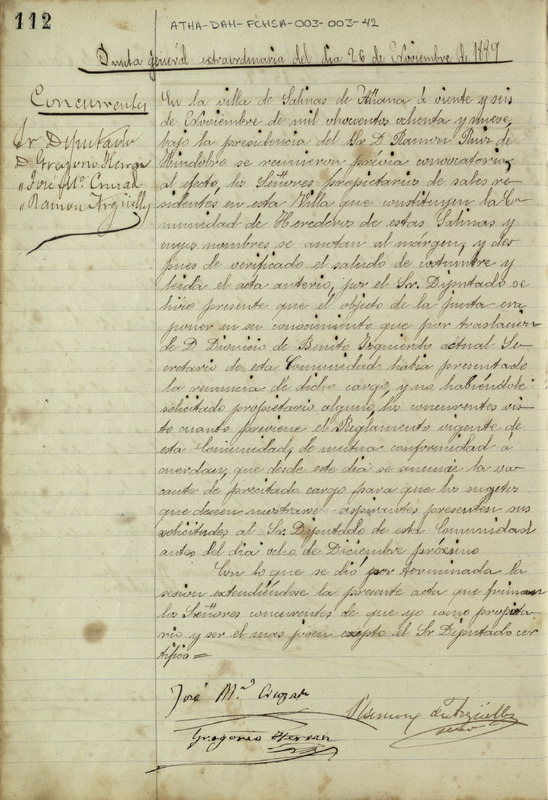 112
ATHA-DAH-FCHSA-003-003-42
Junta general extraordinaria del dia 26 de Noviembre de 1889
Concurrentes
Sr. Diputado
D. Gregorio Herran
" José Mª Cruzat
" Ramon Argüelles
En la villa de Salinas de Añana á viente y seis
de Noviembre de mil ochocientos ochenta y nueve,
bajo la presidencia del Sr D. Ramon Ruiz de
Huidobro se reunieron previa convocatoria
al efecto, los Señores propietarios de sales re-
sidentes en esta Villa que constituyen la Co-
munidad de Herederos de estas Salinas y
cuyos nombres se anotan al márgen, y des-
pues de verificado el saludo de costumbre y
leida el acta anterior, por el Sr. Diputado se
hizo presente que el objecto de la junta era
poner en su conocimiento que por traslacion
de D Dionisio de Benito Izquierdo actual Se-
cretario de esta Comunidad habia presentado
la renuncia de dicho cargo, y no habiéndole
solicitado propietario alguno, los concurentes vis-
to cuanto previene el Reglamento vigente de
esta Comunidad, de mutua conformidad a-
cuerdan, que desde este dia se anuncie la va-
cante de precitado cargo para que los sugetos
que deseen mostrarse aspirantes presenten sus
solicitudes al Sr. Diputado de esta Comunidad
antes del dia ocho de Diciembre próximo
Con lo que se dió por terminada la
sesion extendiéndose la presente acta que firman
los Señores concurentes de que yo como propieta-
rio y ser el mas joven excepto el Sr Diputado cer-
tifico =
José Mª Cruzat
Gregorio Herran
de Argüelles